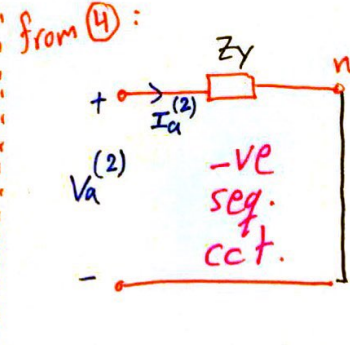 from ④ :
Zy
n
+
Ia^(2)
Va^(2)
-ve
seq.
cct.
-